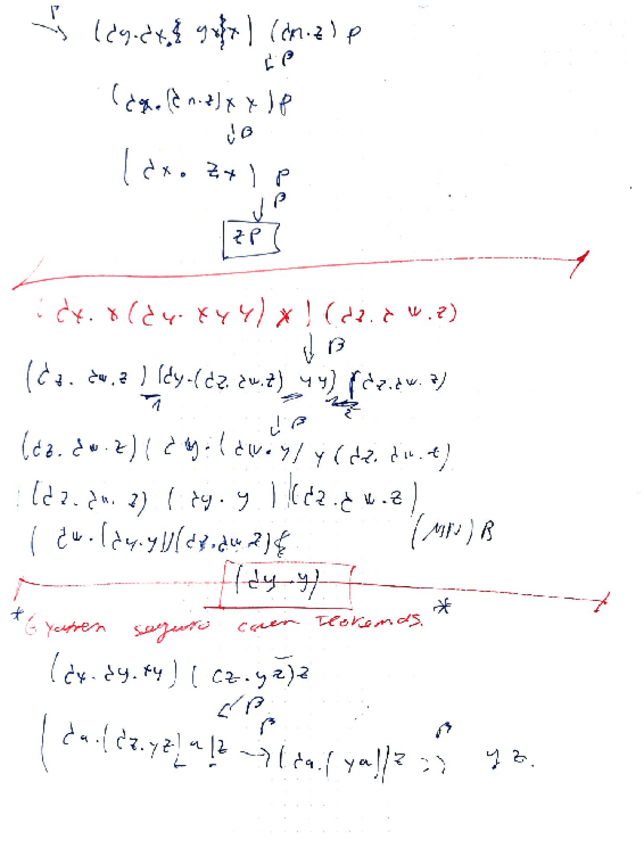 β→ (λy.λx.{ yx}x) (λn.z) p
↓β
(λx.(λn.z)x x)p
↓β
(λx. zx) p
↓β
zp
λx. x(λy. xyy) x) (λz.λw.z)
↓β
(λz. λw.z)(λy.(λz.λw.z) yy) (λz.λw.z)
↓β
(λz.λw.z)(λy.(λw.y) y (λz.λw.z)
(λz.λw.z) (λy.y) (λz.λw.z)
(λw.(λy.y))(λz.λw.z) (MN)β
(λy.y)
* Examen seguro caen *
(λx.λy.xy) (λz.yz)z
↓β
(λa.(λz.yz)a)z →β (λa.(ya))z →β yz.